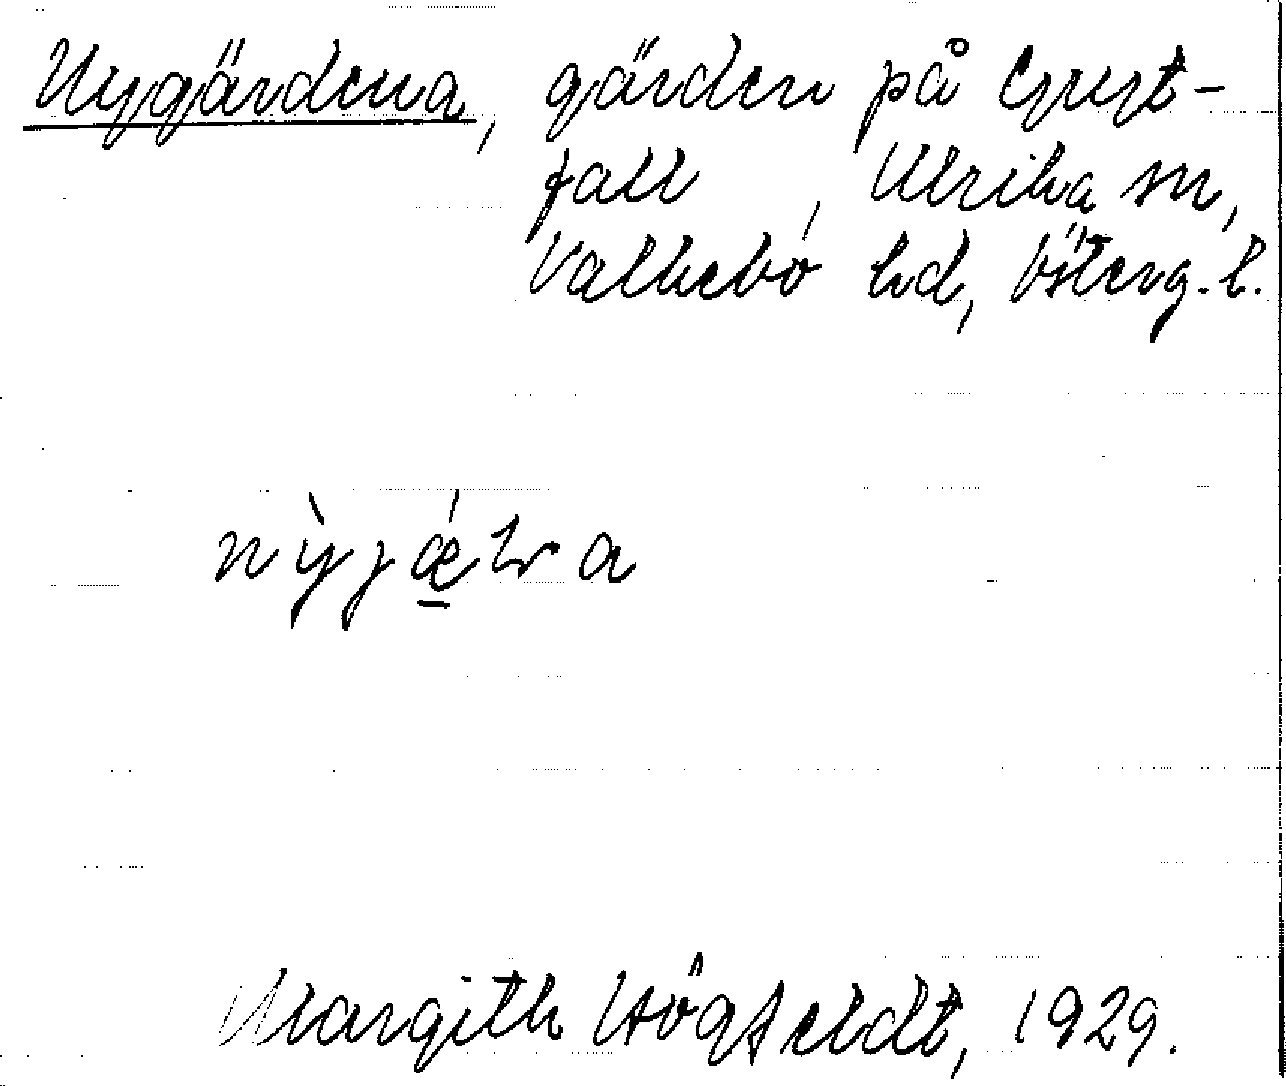 Nygärdena, gärden på Grytfall
fall, Ulrika sn,
Valkebo hd, Österg. l.
nỳjǽṟa
Margith Högfeldt, 1929.